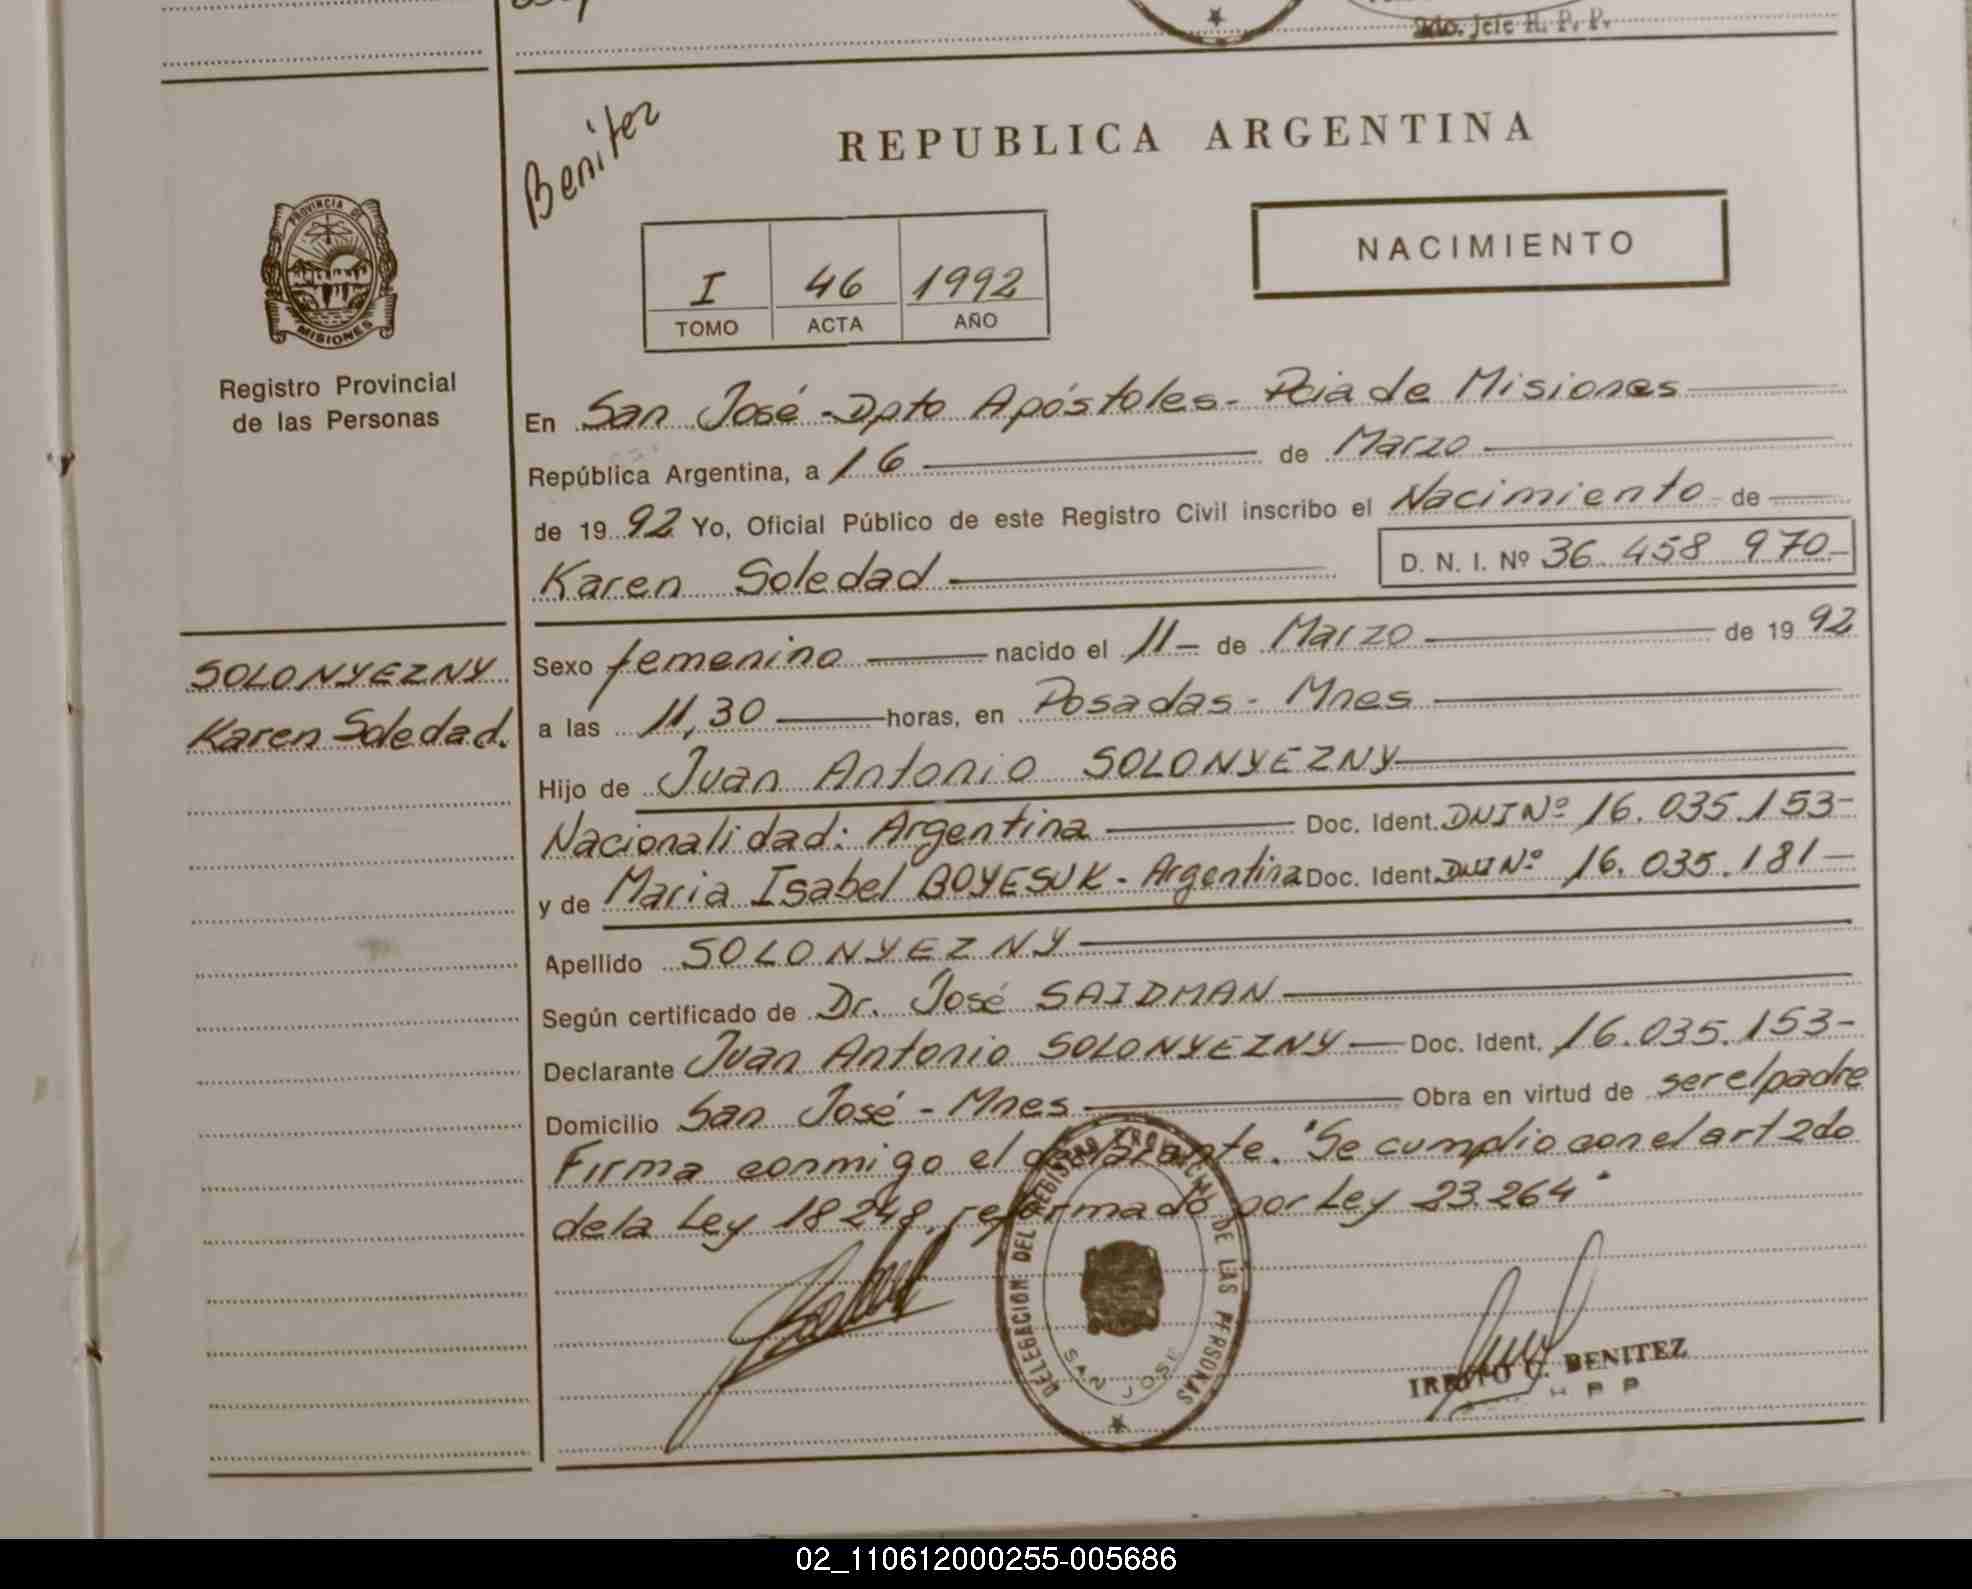 2do. Jefe R. P. P.
Benitez
REPUBLICA ARGENTINA
PROVINCIA DE
MISIONES
Registro Provincial
de las Personas
NACIMIENTO
I 46 1992
TOMO ACTA AÑO
En San José - Dpto Apóstoles - Pcia de Misiones
República Argentina, a 16 de Marzo
de 1992 Yo, Oficial Público de este Registro Civil inscribo el Nacimiento de
Karen Soledad D. N. I. Nº 36.458.970-
SOLONYEZNY
Karen Soledad.
Sexo femenino nacido el 11- de Marzo de 1992
a las 11,30 horas, en Posadas - Mnes
Hijo de Juan Antonio SOLONYEZNY
Nacionalidad: Argentina Doc. Ident. DNI Nº 16.035.153-
y de Maria Isabel BOYESUK - Argentina Doc. Ident. DNI Nº 16.035.181-
Apellido SOLONYEZNY
Según certificado de Dr. José SAIDMAN
Declarante Juan Antonio SOLONYEZNY Doc. Ident. 16.035.153-
Domicilio San José - Mnes Obra en virtud de ser el padre
Firma conmigo el declarante. "Se cumplio con el art 2do
de la Ley 18248, reformado por Ley 23.264"
DELEGACION DEL REGISTRO PROVINCIAL DE LAS PERSONAS
SAN JOSE
C. BENITEZ
02_110612000255-005686